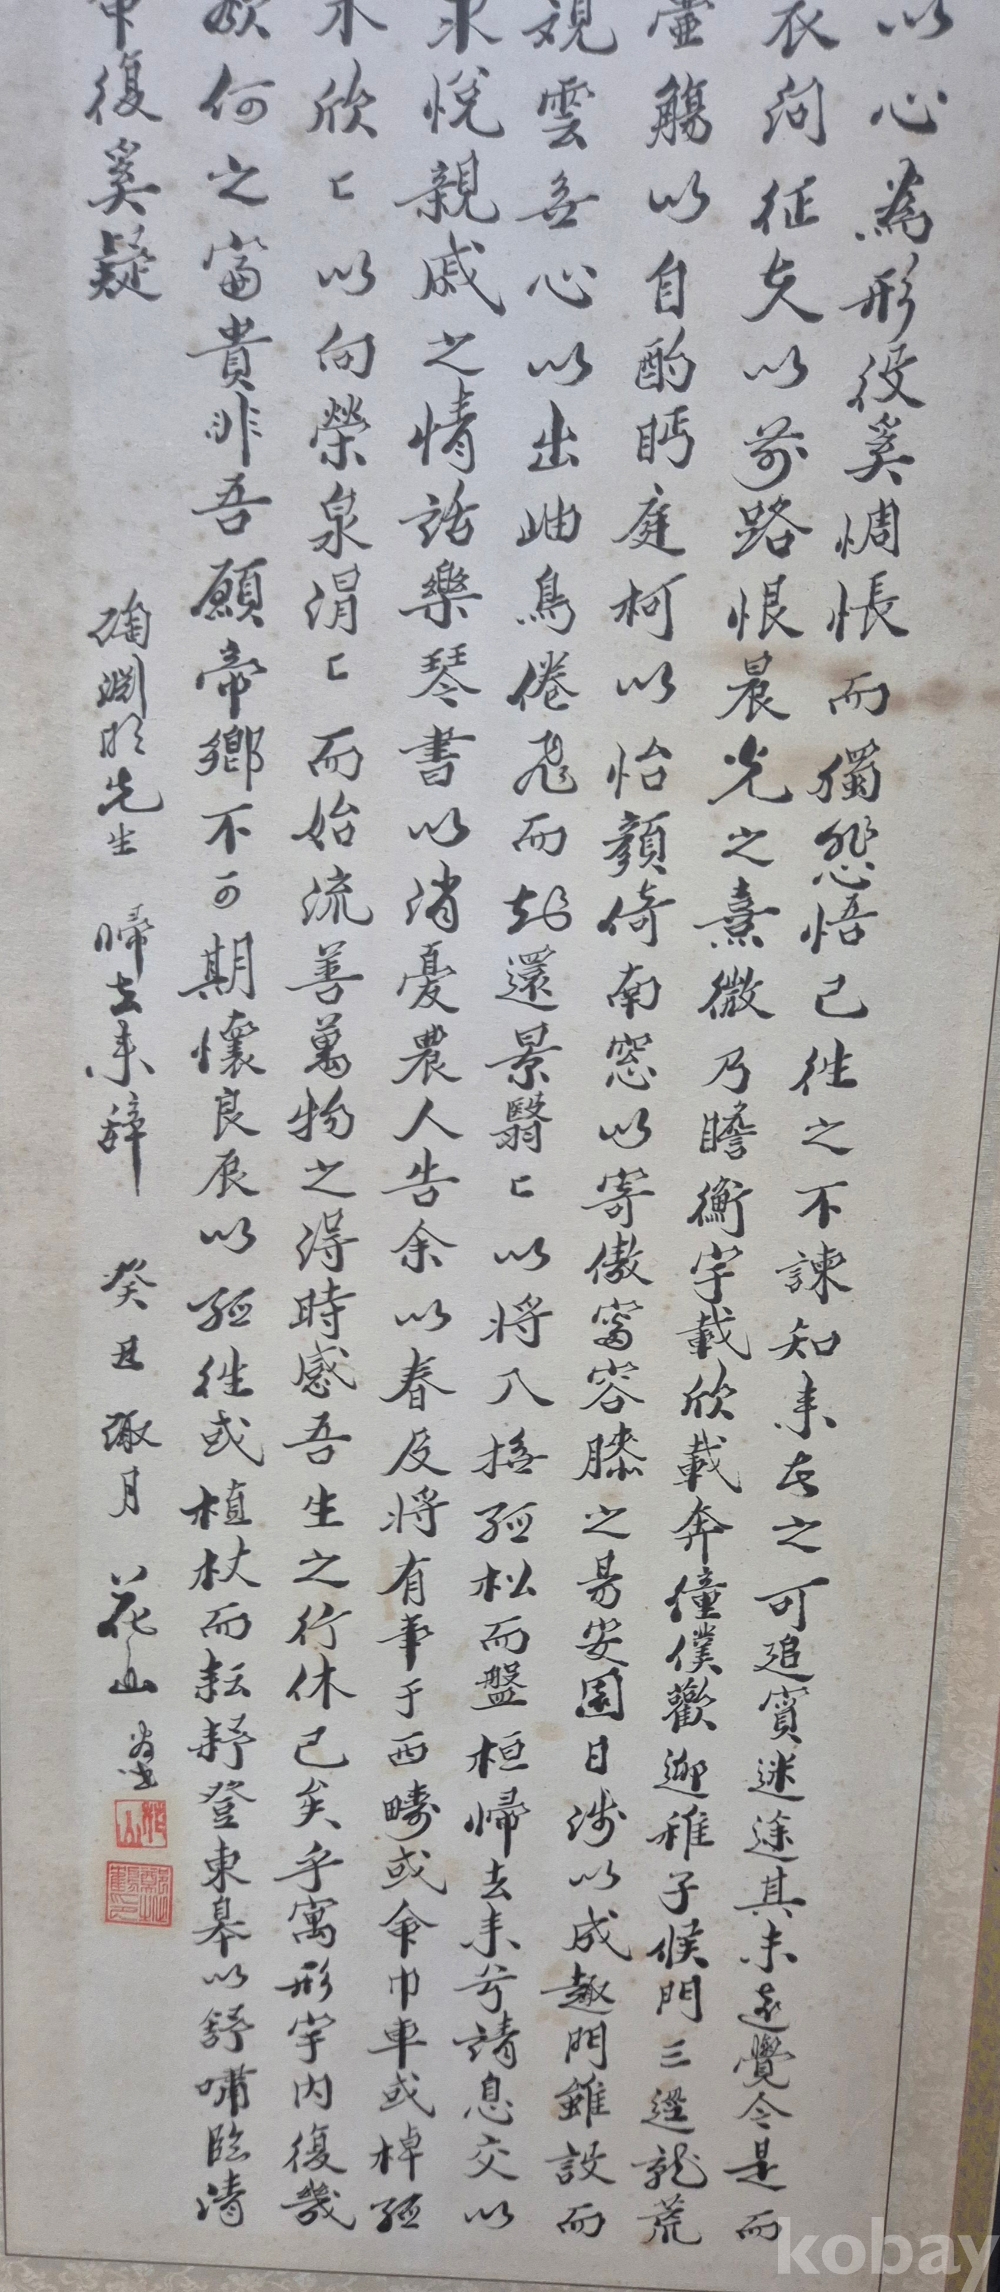 以心為形役奚惆悵而獨悲悟已往之不諫知来者之可追實迷途其未遠覺今是而
衣問征夫以前路恨晨光之熹微乃瞻衡宇載欣載奔僮僕歡迎稚子候門三逕就荒
壺觴以自酌眄庭柯以怡顔倚南窓以寄傲審容膝之易安園日涉以成趣門雖設而
觀雲無心以出岫鳥倦飛而知還景翳〻以将入撫孤松而盤桓帰去来兮請息交以
求悅親戚之情話樂琴書以消憂農人告余以春及将有事于西疇或命巾車或棹孤
木欣〻以向榮泉涓〻而始流善萬物之得時感吾生之行休已矣乎寓形宇内復幾
欲何之富貴非吾願帝鄉不可期懷良辰以孤往或植杖而耘耔登東皋以舒嘯臨清
命復奚疑
陶淵明先生 帰去来辞 癸丑 月 花山
kobay